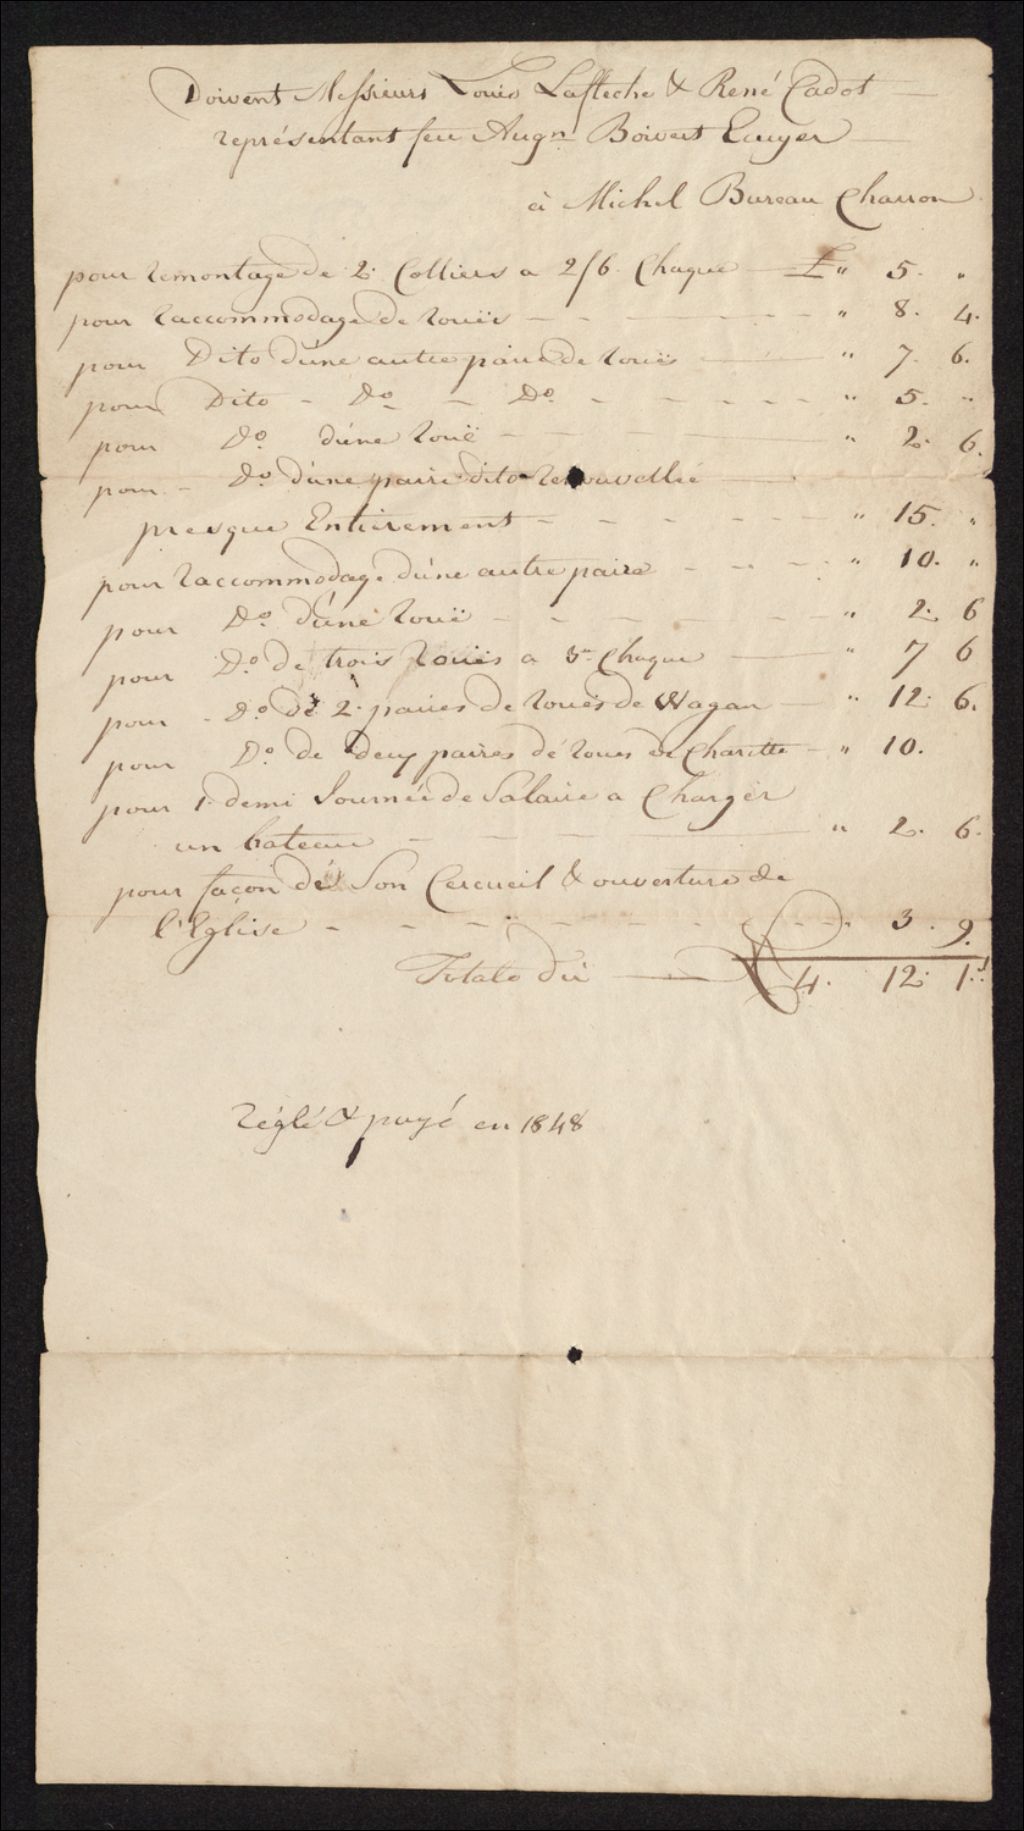 Doivent Messieurs Louis Lafleche & René Cadot
représentant feu Augn Boivert Ecuyer
à Michel Bureau Charron
pour remontage de 2. Colliers a 2/6. Chaque £ " 5. "
pour raccommodage de rouës - - - - " 8. 4.
pour Dito d'une autre paire de rouës " 7. 6.
pour Dito - Do - Do. - - - - " 5. "
pour Do. d'une rouë - - " 2. 6.
pour - Do. d'une paire dito renouvellée
presque Entierement - - - - - " 15. "
pour raccommodage d'une autre paire - - - " 10. "
pour Do. d'une rouë - - - - " 2. 6
pour Do. de trois rouës a Chaque " 7 6
pour - Do. de 2. paires de roues de Wagan " 12. 6.
pour Do. de deux paires de roues de Charette - " 10.
pour 1. demi Journée de Salaire a Charger
un bateau - - - " 2. 6.
pour façon de Son Cercueil & ouverture de
l'Eglise - - - - - - - 3. 9.
Totale dû £ 4. 12. 1.d
réglé & payé en 1848